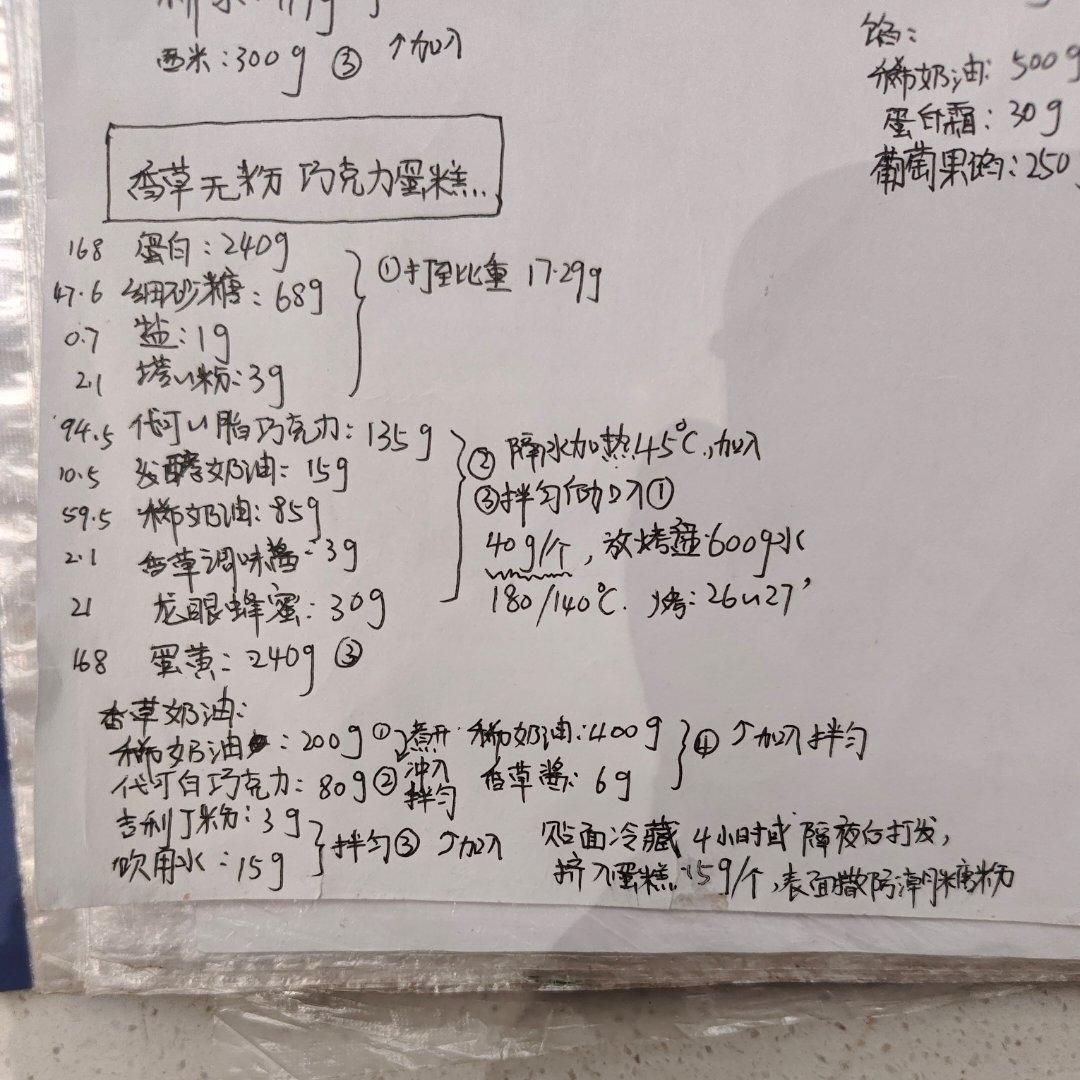 西米:300g ③ ↑加入
馅:
稀奶油: 500g
蛋白霜: 30g
葡萄果馅: 250
香草无粉巧克力蛋糕
168 蛋白: 240g
47.6 细砂糖: 68g
0.7 盐: 1g
2.1 塔塔粉: 3g
①打至比重 17-29g
94.5 代可可脂巧克力: 135g
10.5 发酵奶油: 15g
59.5 稀奶油: 85g
2.1 香草调味酱: 3g
21 龙眼蜂蜜: 30g
② 隔水加热45℃,加入
③拌匀 加入①
40g/个, 放烤盘600g水
180/140℃. 烤: 26~27'
168 蛋黄: 240g ③
香草奶油:
稀奶油: 200g ① 煮开
代可白巧克力: 80g ② 冲入拌匀
吉利丁粉: 3g
饮用水: 15g
拌匀③ ↑加入
稀奶油: 400g
香草酱: 6g
④ ↑加入拌匀
贴面冷藏 4小时或隔夜后打发,
挤入蛋糕15g/个,表面撒防潮糖粉